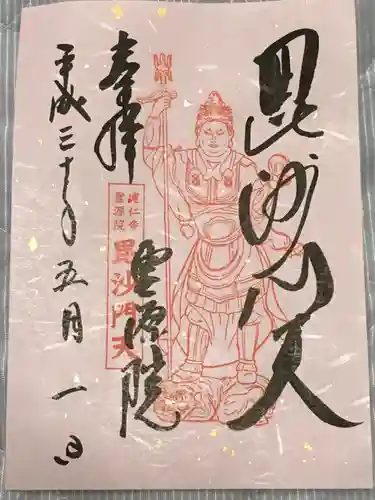 毘沙門天
奉拝
建仁寺
霊源院
毘沙門天
霊源院
平成三十年五月一日